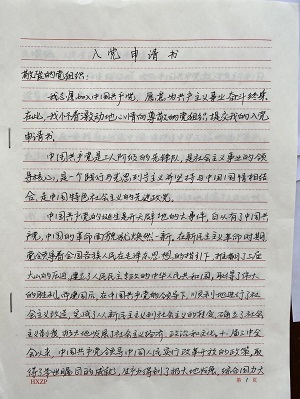 入党申请书
敬爱的党组织：
我志愿加入中国共产党，愿意为共产主义事业奋斗终身
在此，我怀着激动地心情向尊敬的党组织提交我的入党
申请书。
中国共产党是工人阶级的先锋队，是社会主义事业的领
导核心，是一个践行马克思列宁主义和坚持与中国国情相结
合，是中国特色社会主义的先进政党。
中国共产党的诞生是开天辟地的大事件，自从有了中国共
产党，中国的革命面貌就焕然一新。在新民主主义革命时期
党领导着全国各族人民在毛泽东思想的指引下，推翻了三座
大山的压迫，建立了人民民主专政的中华人民共和国，取得了伟大
的胜利。
在中国共产党的领导下，顺利地进行了社
会主义改造，完成了从新民主主义到社会主义的社会，确立了社会
主义制度，极大地发展了社会主义经济、政治和文化。十一届三中全
会以来，中国共产党领导中国人民实行改革开放的政策，取
得了举世瞩目的成就，生产力得到了极大地发展，综合国力大
HXZP
第 1 页